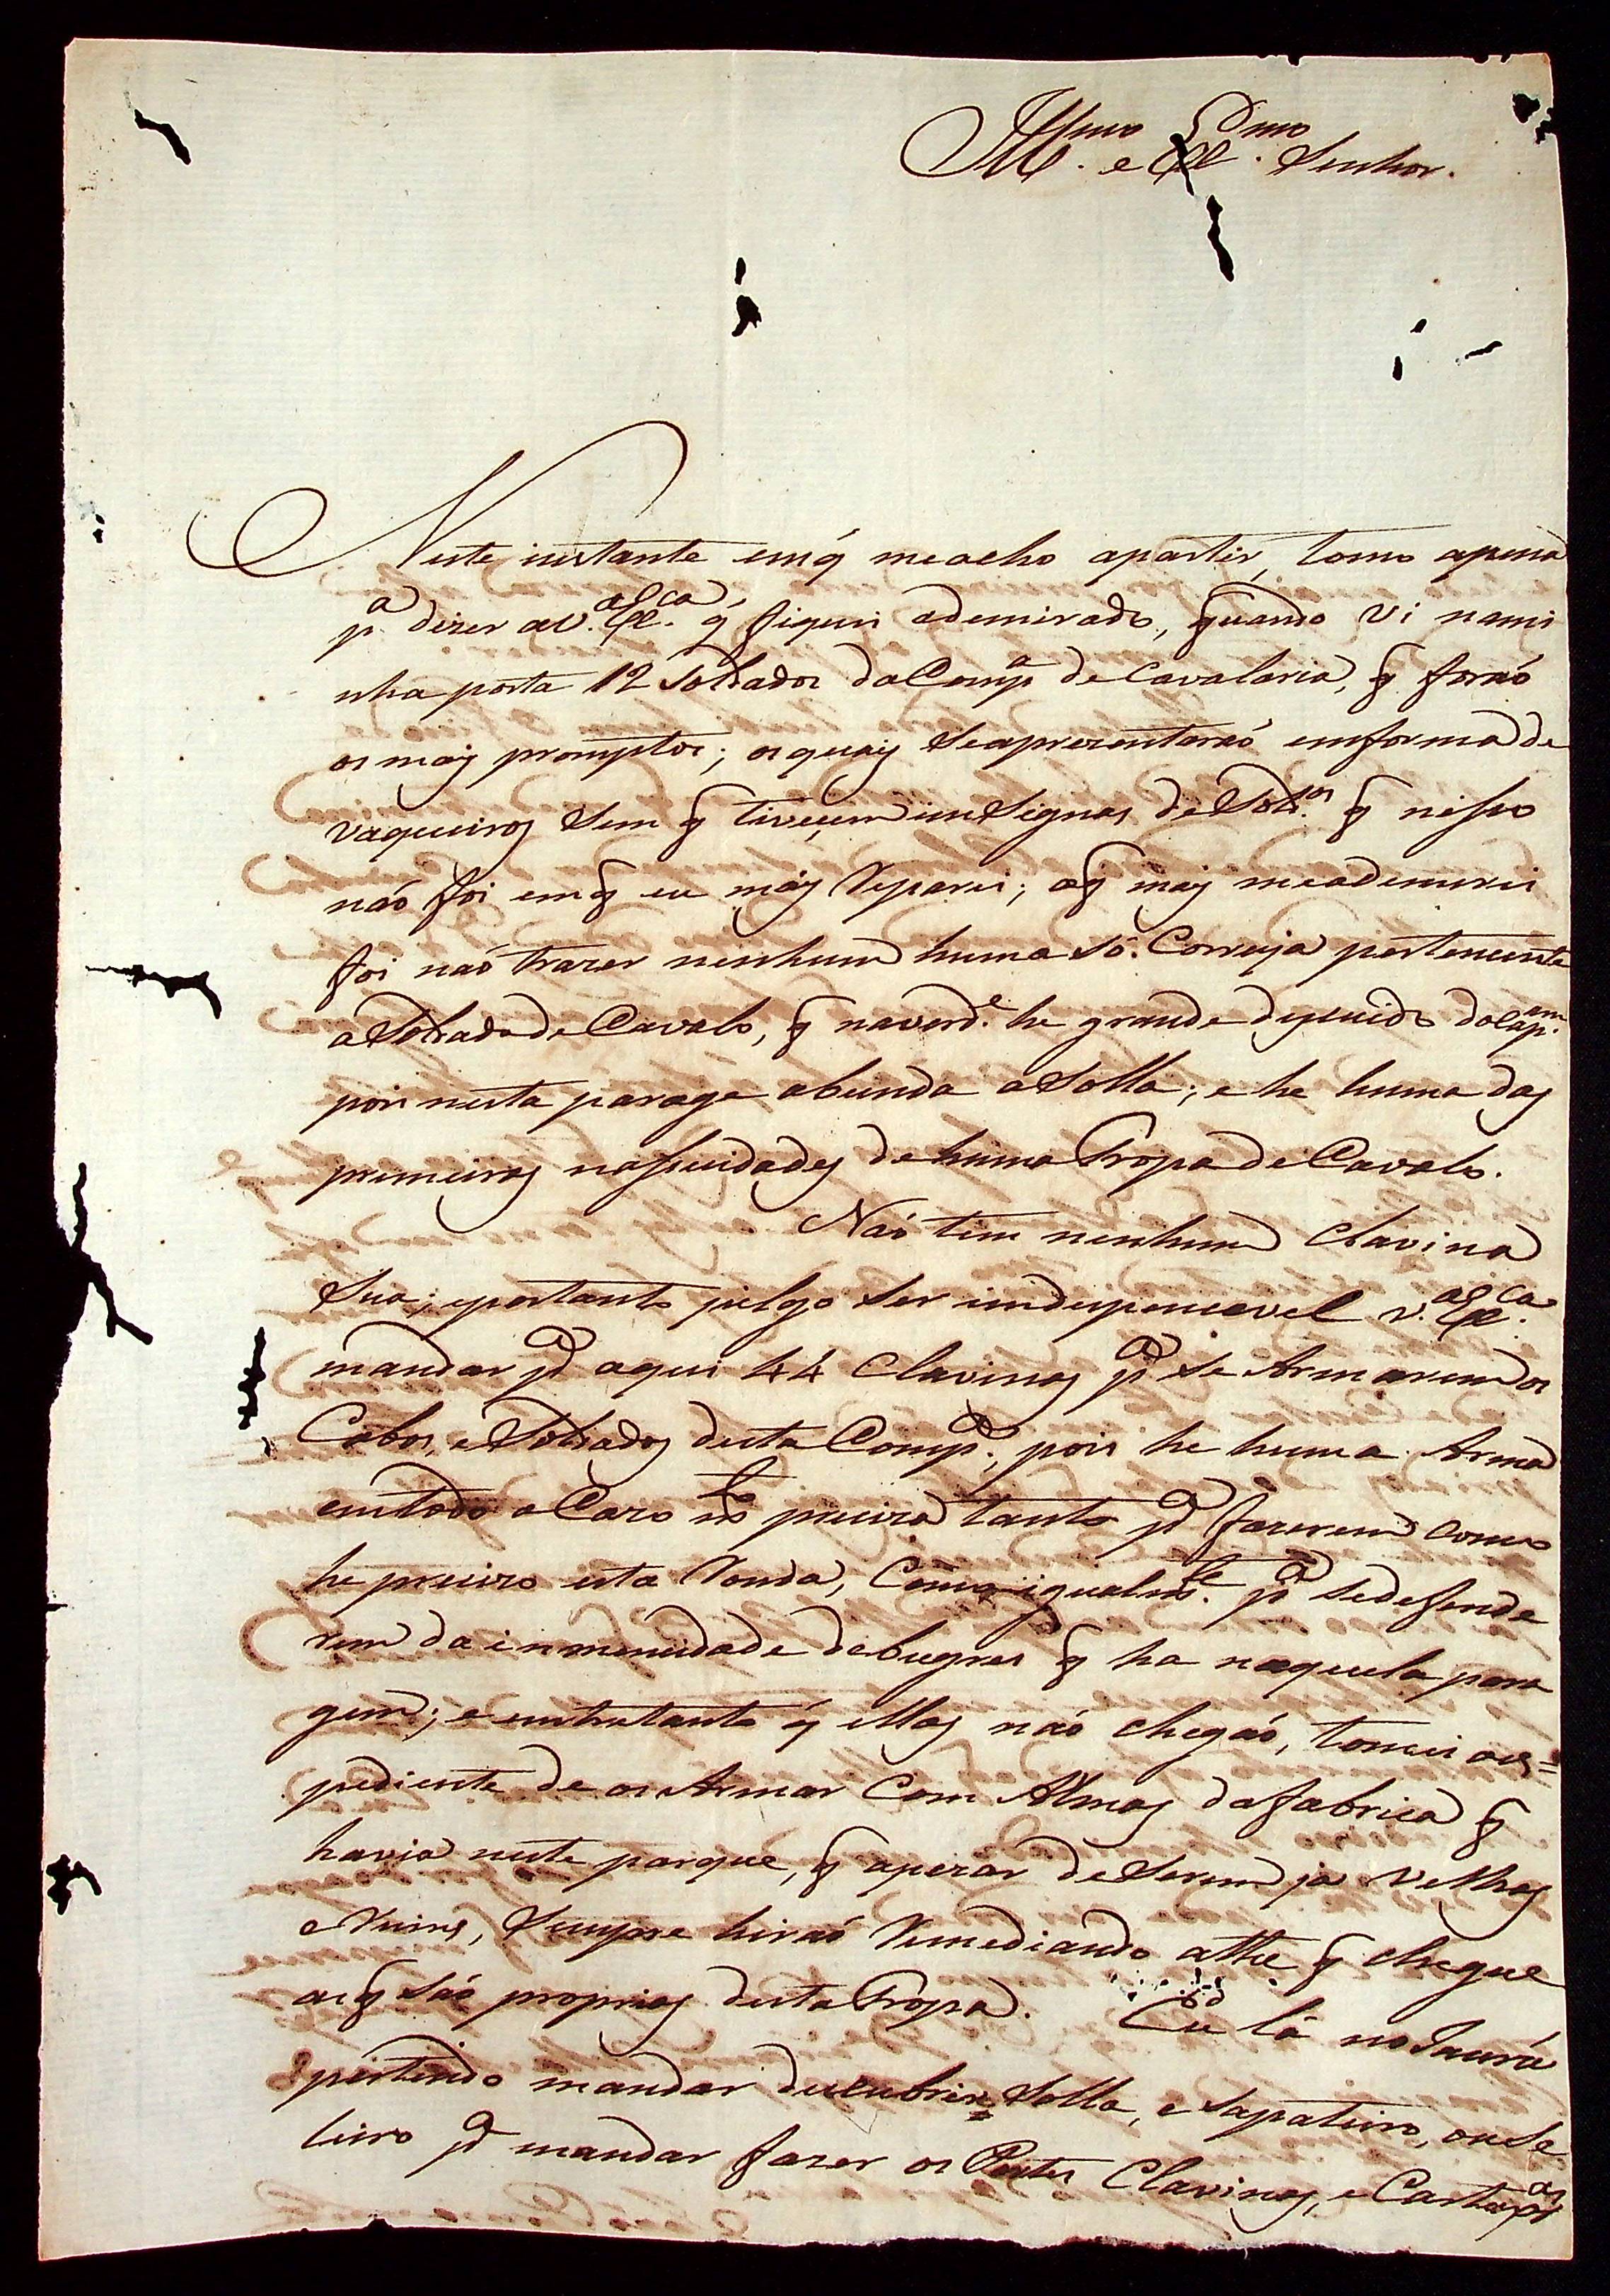 Ill.mo e Ex.mo Senhor.
Neste instante emq̃ meacho apartir, tomo apena
p.a dizer aV. Ex.ca q̃ fiquei ademirado, quando vi nami
nha porta 12 Soldados daComp.a deCavalaria, q̃ foraõ
os mais promptos; os quais Seaprezentaraõ emforma de
vaqueiros Sem q̃ tiveçem insignias deSold.os q̃ nisso
naõ foi emq̃ eu mais Reparei; oq̃ mais meademirei
foi naõ trazer nenhum huma só Correja pertencente
aSoldado deCavalo, q̃ naverd.e he grande descuido doCap.am
pois nesta parage abunda aSolla; e he huma das
primeiras nessecidades dehuma Tropa deCavalo.
Naõ tem nenhum Clavina
Sua; eportanto julgo ser indespencavel V. Ex.ca
mandar p.a aqui 44 Clavinas p.a se Armarem os
Cabos, eSoldados desta Comp.a, pois he huma Arma
emtodo oCazo m.to preciza tanto p.a fazerem como
he precizo esta Ronda, Como igualm.te p.a sedefende
rem da inmencidade debugres q̃ ha naquela para
gem; e emtretanto q̃ ellas naõ chegaõ, tomei oes=
pediente de os Armar Com Armas dafabrica q̃
havia neste parque, q̃ apezar deSerem ja velhas
eRuins, Sempre hiraõ Remediando athe q̃ chegue
asq̃ saõ proprias destaTropa. Eu lá no Jaurú
pertendo mandar descubrir Solla, e sapateiro, ouSe
leiro p.a mandar fazer os Portes Clavinas, e Cartux.as